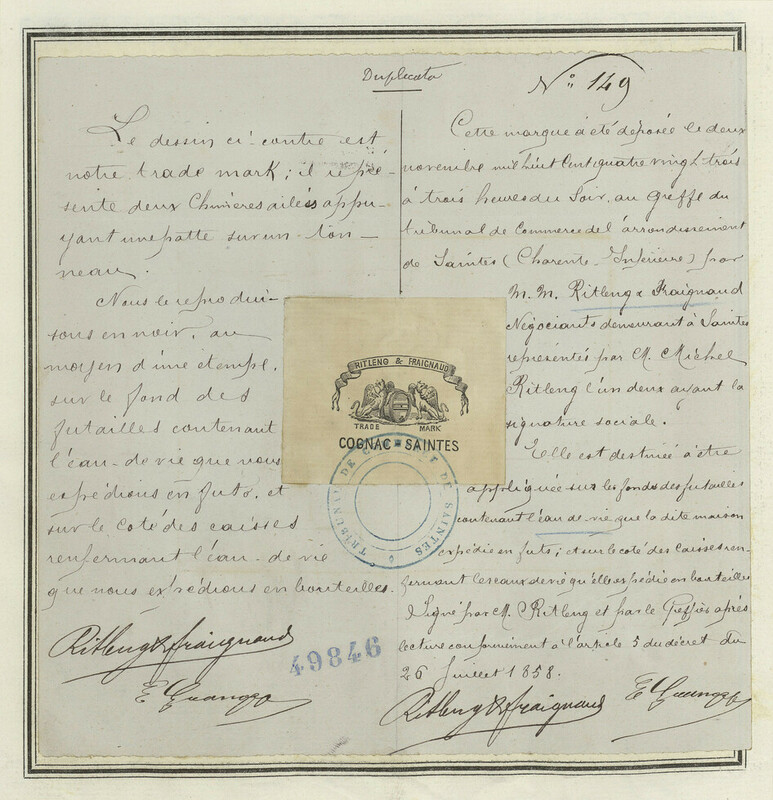 Duplicata
Nº 149
Le dessin ci-contre est
notre trade mark; il repré-
sente deux Chimères ailées appu-
yant une patte sur un ton-
neau.
Nous le reprodui-
sons en noir, au
moyen d'une étampe,
sur le fond des
futailles contenant
l'eau-de-vie que nous
expédions en futs, et
sur le coté des caisses
renfermant l'eau-de-vie
que nous expédions en bouteilles.
Ritleng & fraignaud
49846
Cette marque a été déposée le deux
novembre mil huit cent quatre vingt trois
à trois heures du Soir, au greffe du
tribunal de Commerce de l'arrondissement
de Saintes (Charente-Inférieure) par
M.M. Ritleng & Fraignaud
Négociants demeurant à Saintes
représentés par M. Michel
Ritleng l'un deux ayant la
signature sociale.
Elle est destinée à être
appliquée sur les fonds des futailles
contenant l'eau-de-vie que la dite maison
expédie en futs; et sur le coté des caisses ren-
fermant les eaux de vie qu'elle expédie en bouteilles
Signé par M. Ritleng et par le Greffier après
lecture conformément à l'article 5 du décret du
26 Juillet 1858.
Ritleng & fraignaud
RITLENG & FRAIGNAUD
TRADE MARK
COGNAC-SAINTES
TRIBUNAL DE COMMERCE DE SAINTES